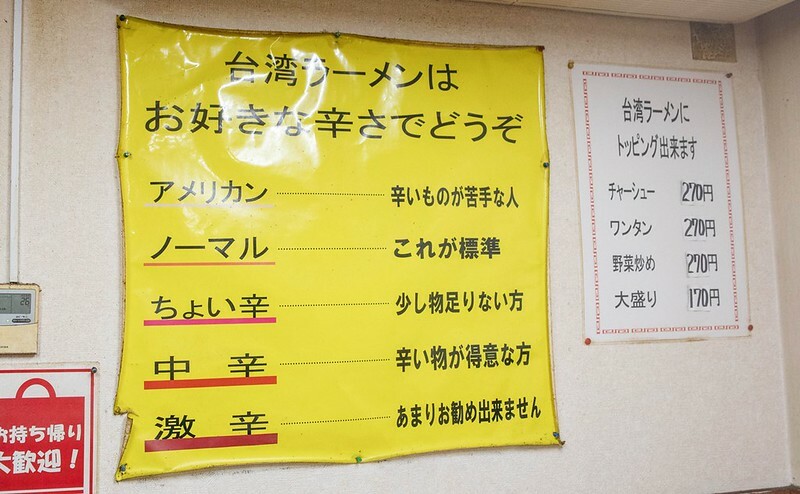 台湾ラーメンは
お好きな辛さでどうぞ
アメリカン 辛いものが苦手な人
ノーマル これが標準
ちょい辛 少し物足りない方
中辛 辛い物が得意な方
激辛 あまりお勧め出来ません
台湾ラーメンに
トッピング出来ます
チャーシュー 270円
ワンタン 270円
野菜炒め 270円
大盛り 170円
26
お持ち帰り
大歓迎!